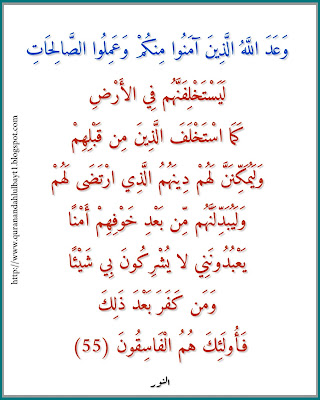 وَعَدَ اللَّهُ الَّذِينَ آمَنُوا مِنكُمْ وَعَمِلُوا الصَّالِحَاتِ
لَيَسْتَخْلِفَنَّهُم فِي الْأَرْضِ
كَمَا اسْتَخْلَفَ الَّذِينَ مِن قَبْلِهِمْ
وَلَيُمَكِّنَنَّ لَهُمْ دِينَهُمُ الَّذِي ارْتَضَى لَهُمْ
وَلَيُبَدِّلَنَّهُم مِّن بَعْدِ خَوْفِهِمْ أَمْنًا
يَعْبُدُونَنِي لَا يُشْرِكُونَ بِي شَيْئًا
وَمَن كَفَرَ بَعْدَ ذَلِكَ
فَأُولَئِكَ هُمُ الْفَاسِقُونَ (55)
النور
http://www.quranandahlulbayt1.blogspot.com